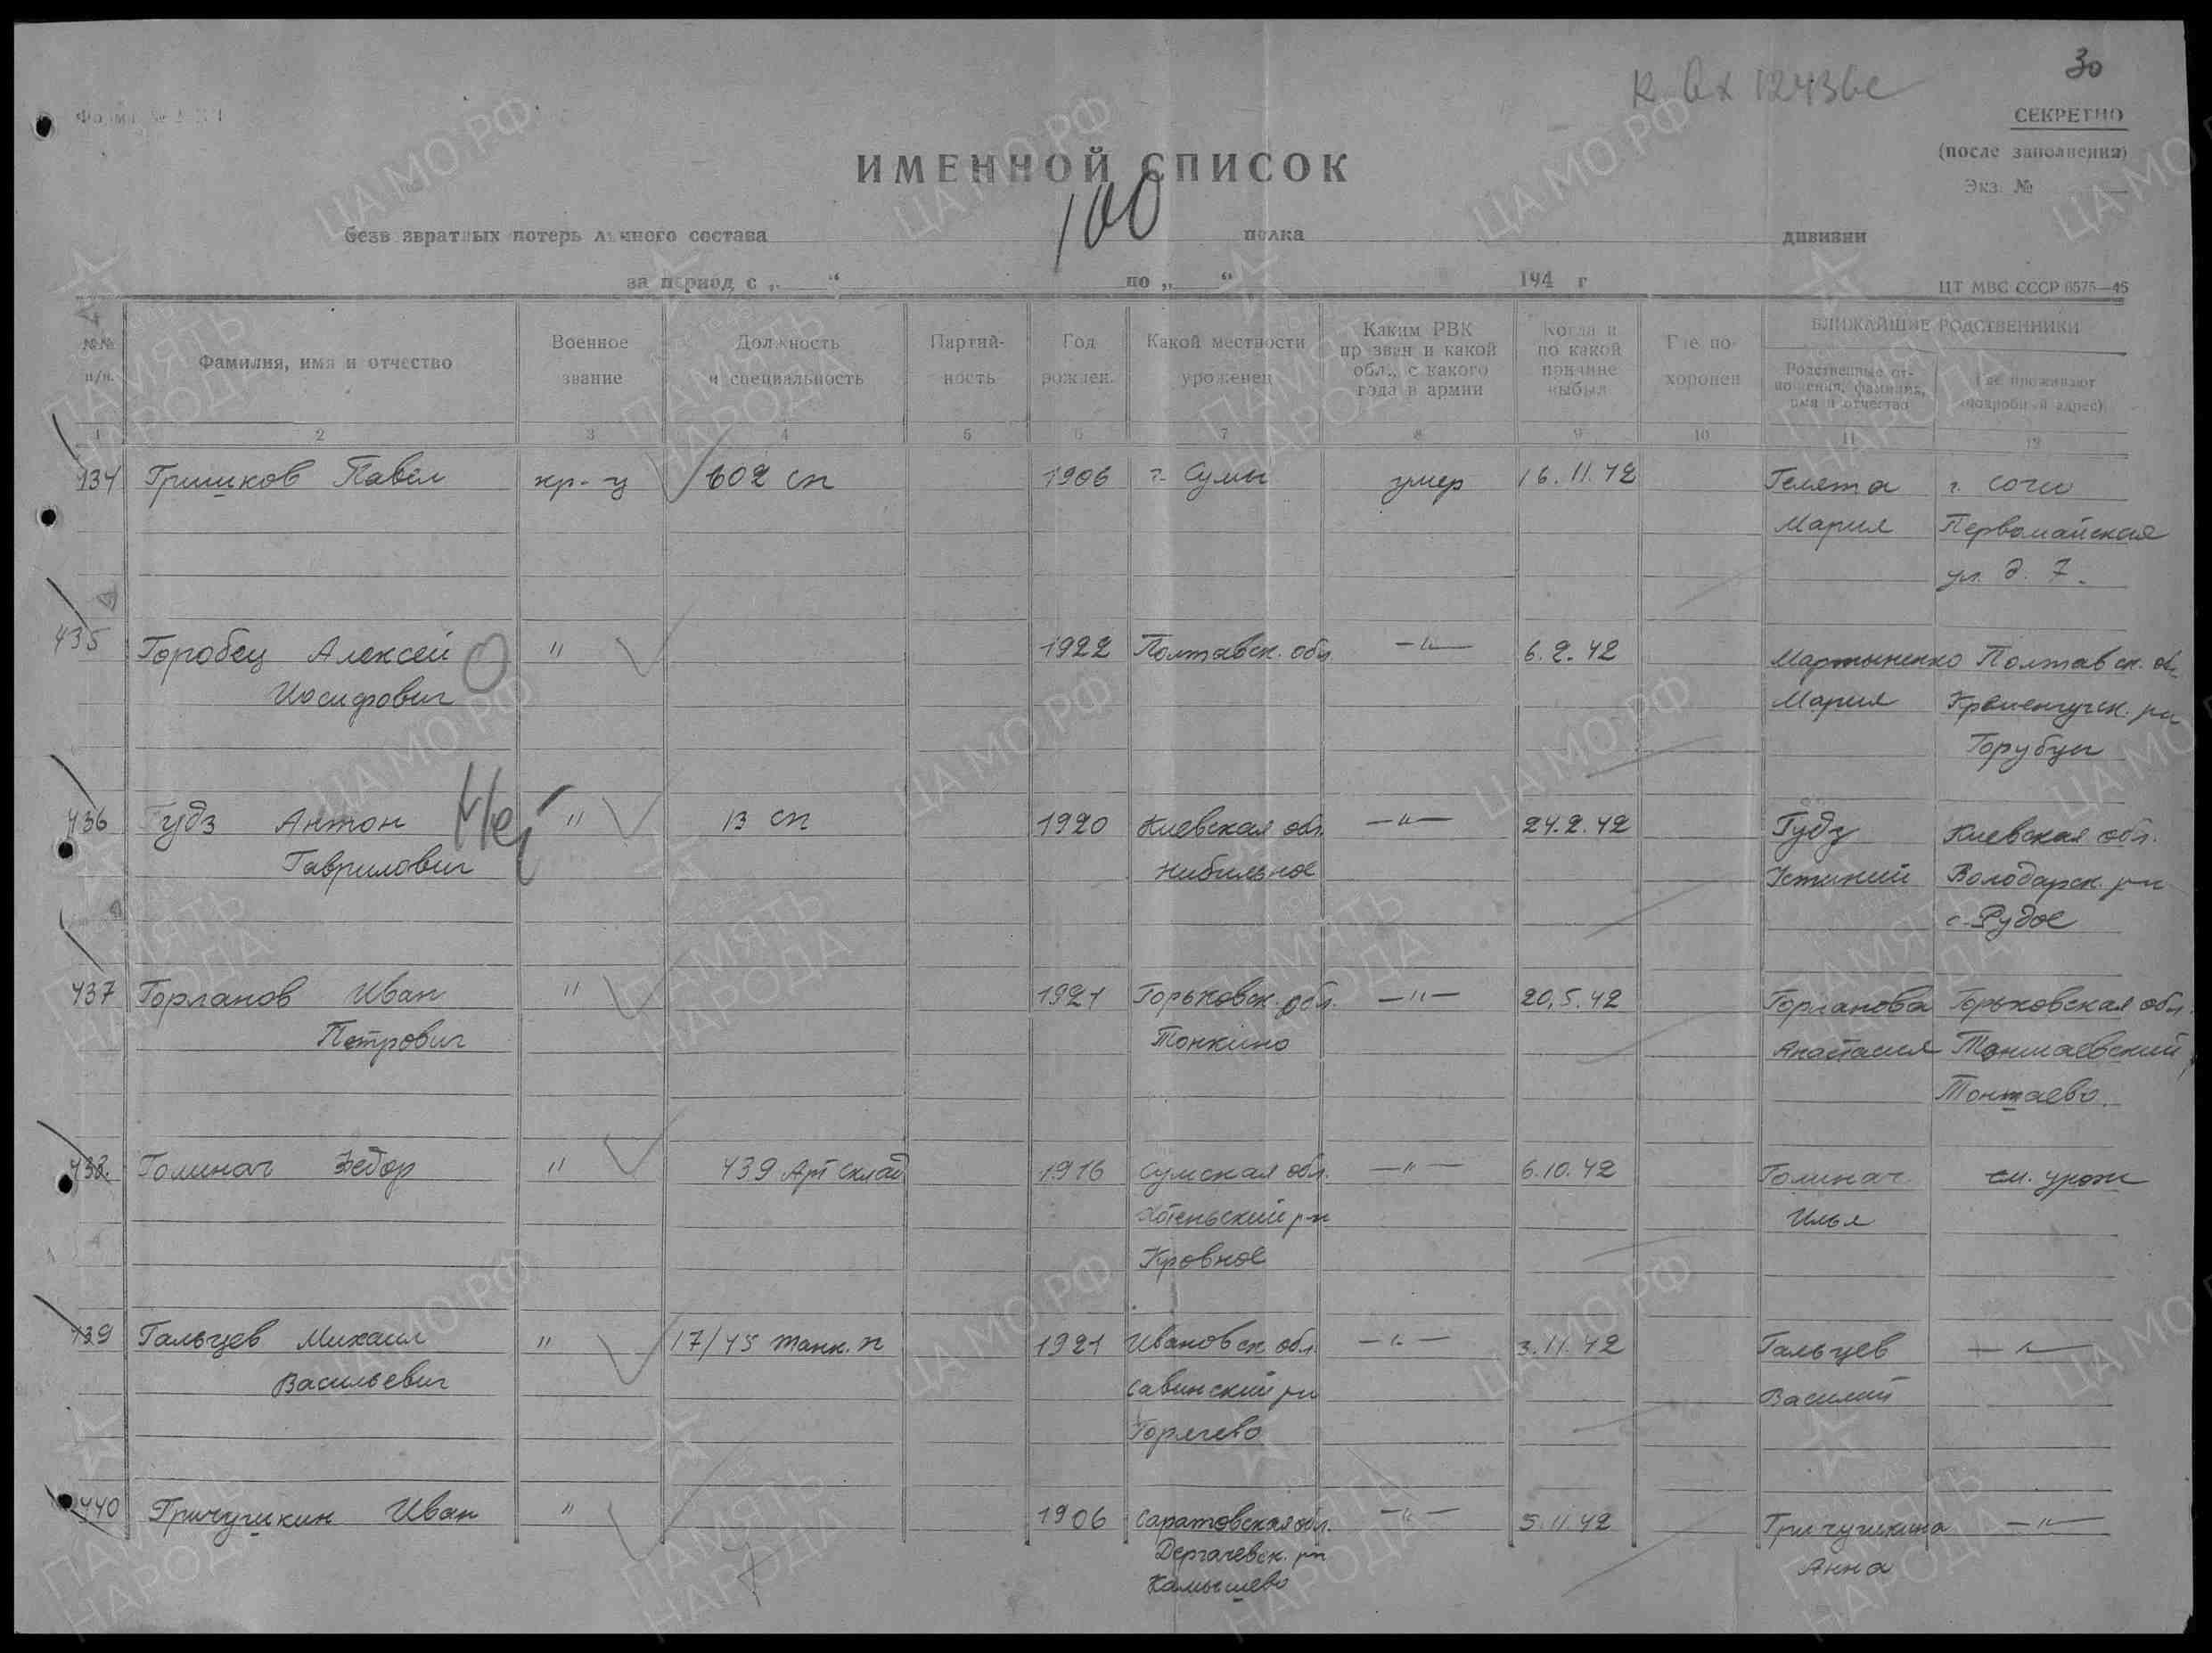 30
К вх 12436с
Форма №
СЕКРЕТНО
(после заполнения)
Экз. №
ИМЕННОЙ СПИСОК
100
безвозвратных потерь личного состава полка дивизии
за период с „ “ по „ “ 194 г
ЦТ МВС СССР 6575—45
№№ п/п.
Фамилия, имя и отчество
Военное звание
Должность и специальность
Партий-ность
Год рожден.
Какой местности уроженец
Каким РВК призван и какой обл., с какого года в армии
Когда и по какой причине выбыл
Где по-хоронен
БЛИЖАЙШИЕ РОДСТВЕННИКИ
Родственные от-ношения, фамилия, имя и отчество
Где проживают (подробный адрес)
1 2 3 4 5 6 7 8 9 10 11 12
434 Гришков Павел кр-ц 602 сп 1906 г. Сумы умер 16.11.42 Гелета г. Сочи
Мария Первомайская
ул. д. 7.
435 Горобец Алексей " 1922 Полтавск. обл. —"— 6.2.42 Мартыненко Полтавск. об.
Иосифович Мария Кременчугск. рн
Горубцы
436 Гудз Антон " 13 сп 1920 Киевская обл. —"— 24.2.42 Гудз Киевская обл.
Гаврилович Нибильное Устиний Володарск. рн
с. Рудое
437 Горланов Иван " 1921 Горьковск. обл. —"— 20.5.42 Горланова Горьковская обл.
Петрович Тонкино Анастасия Тоншаевский
Тонтаево.
438. Голинач Федор " 439 Арт склад 1916 Сумская обл. —"— 6.10.42 Голинач см. урож
Хотеньский р-н Илья
Кровное
439 Гальцев Михаил " 17/45 танк. п 1921 Ивановск обл. —"— 3.11.42 Гальцев —"—
Васильевич Савинский рн Василий
Горячево
440 Гричушкин Иван " 1906 Саратовская обл. —"— 5.11.42 Гричушкина —"—
Дергачевск. рн Анна
Камышево
ЦА МО.РФ
ПАМЯТЬ
НАРОДА